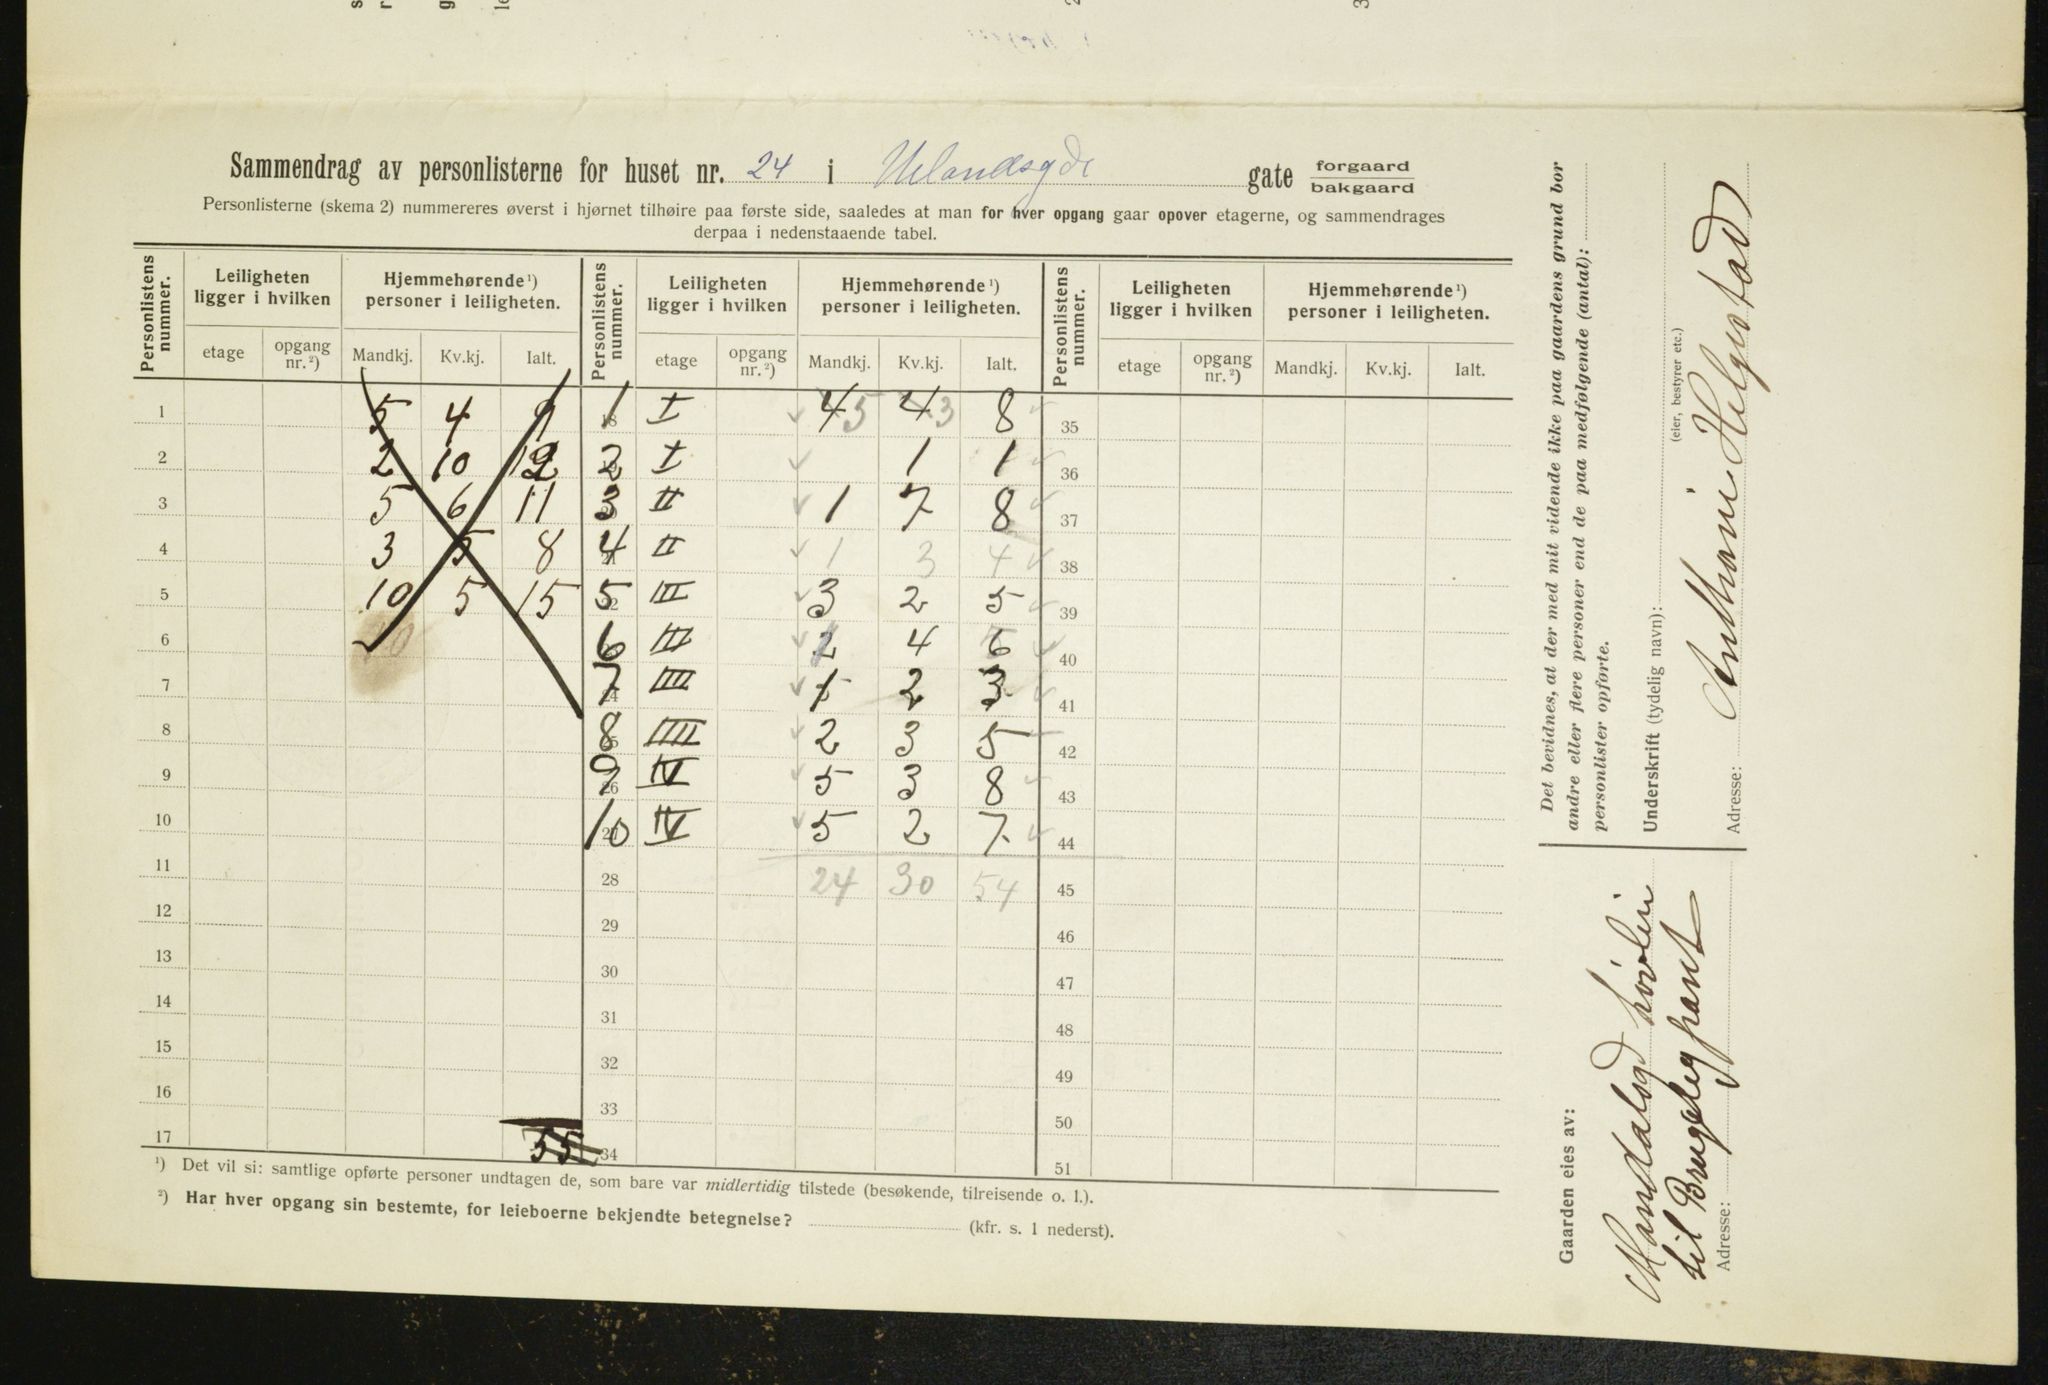 Sammendrag av personlisterne for huset nr. 24 i Uelandsgde gate forgaard bakgaard
Personlisterne (skema 2) nummereres øverst i hjørnet tilhøire paa første side, saaledes at man for hver opgang gaar opover etagerne, og sammendrages
derpaa i nedenstaaende tabel.
Personlistens nummer. Leiligheten ligger i hvilken Hjemmehørende ¹) personer i leiligheten. Personlistens nummer. Leiligheten ligger i hvilken Hjemmehørende ¹) personer i leiligheten. Personlistens nummer. Leiligheten ligger i hvilken Hjemmehørende ¹) personer i leiligheten.
etage opgang nr. ²) Mandkj. Kv.kj. Ialt. etage opgang nr. ²) Mandkj. Kv.kj. Ialt. etage opgang nr. ²) Mandkj. Kv.kj. Ialt.
1 5 4 9 1 I 4 5 4 3 8 35
2 2 10 12 2 I 1 1 36
3 5 6 11 3 II 1 7 8 37
4 3 5 8 4 II 1 3 4 38
5 10 5 15 5 III 3 2 5 39
6 6 III 4 40
7 7 IIII 1 2 3 41
8 8 IIII 2 3 5 42
9 9 IV 5 3 8 43
10 10 IV 5 2 7 44
11 28 24 30 54 45
12 29 46
13 30 47
14 31 48
15 32 49
16 33 50
17 55 34 51
¹) Det vil si: samtlige opførte personer undtagen de, som bare var midlertidig tilstede (besøkende, tilreisende o. l.).
²) Har hver opgang sin bestemte, for leieboerne bekjendte betegnelse? (kfr. s. 1 nederst).
Det bevidnes, at der med mit vidende ikke paa gaardens grund bor
andre eller flere personer end de paa medfølgende (antal):
personlister opførte.
Underskrift (tydelig navn):
(eier, bestyrer etc.)
Anthoni Helgestad
Adresse:
Gaarden eies av:
til Brugelig pant
Adresse: